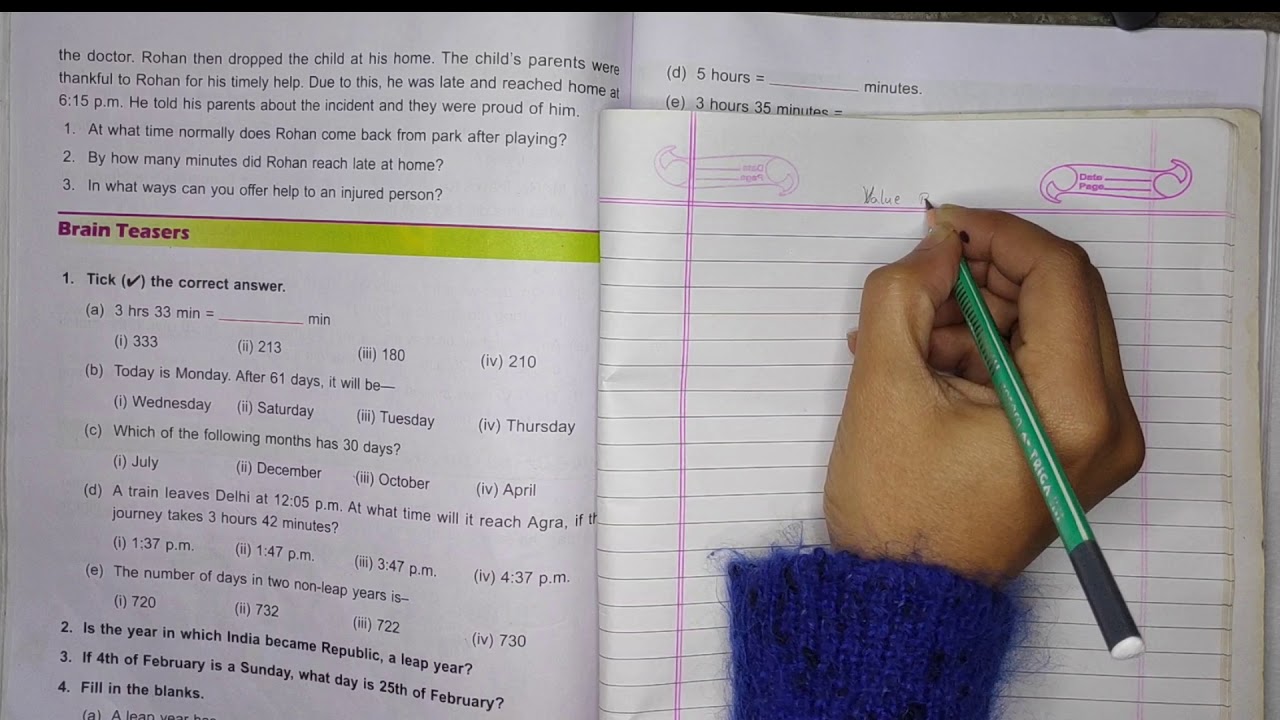 the doctor. Rohan then dropped the child at his home. The child's parents were
thankful to Rohan for his timely help. Due to this, he was late and reached home at
6:15 p.m. He told his parents about the incident and they were proud of him.
1. At what time normally does Rohan come back from park after playing?
2. By how many minutes did Rohan reach late at home?
3. In what ways can you offer help to an injured person?
Brain Teasers
1. Tick (✓) the correct answer.
(a) 3 hrs 33 min = ________ min
(i) 333 (ii) 213 (iii) 180 (iv) 210
(b) Today is Monday. After 61 days, it will be—
(i) Wednesday (ii) Saturday (iii) Tuesday (iv) Thursday
(c) Which of the following months has 30 days?
(i) July (ii) December (iii) October (iv) April
(d) A train leaves Delhi at 12:05 p.m. At what time will it reach Agra, if
journey takes 3 hours 42 minutes?
(i) 1:37 p.m. (ii) 1:47 p.m. (iii) 3:47 p.m. (iv) 4:37 p.m.
(e) The number of days in two non-leap years is–
(i) 720 (ii) 732 (iii) 722 (iv) 730
2. Is the year in which India became Republic, a leap year?
3. If 4th of February is a Sunday, what day is 25th of February?
4. Fill in the blanks.
(a) A leap year
(d) 5 hours = ________ minutes.
(e) 3 hours 35 minutes =
Date
Page
Value
TRICA